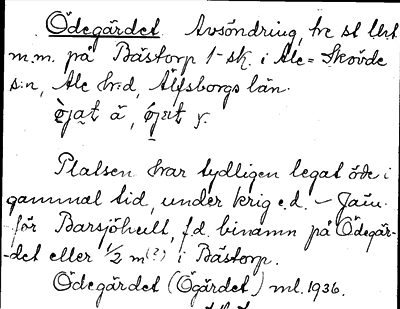 Ödegärdet Avsöndring, tre st lht
m.m. på Bästorp 1 sk. i Ale-Skövde
s:n, Ale h:d, Älfsborgs län.
Platsen har tydligen legat öde i
gammal tid, under krig e.d. – Jäm-
för Barsjöhult, f.d. binamn på Ödegär-
-det eller 1/2 m(?) i Bästorp.
Ödegärdet (Ögärdet) ml. 1936.